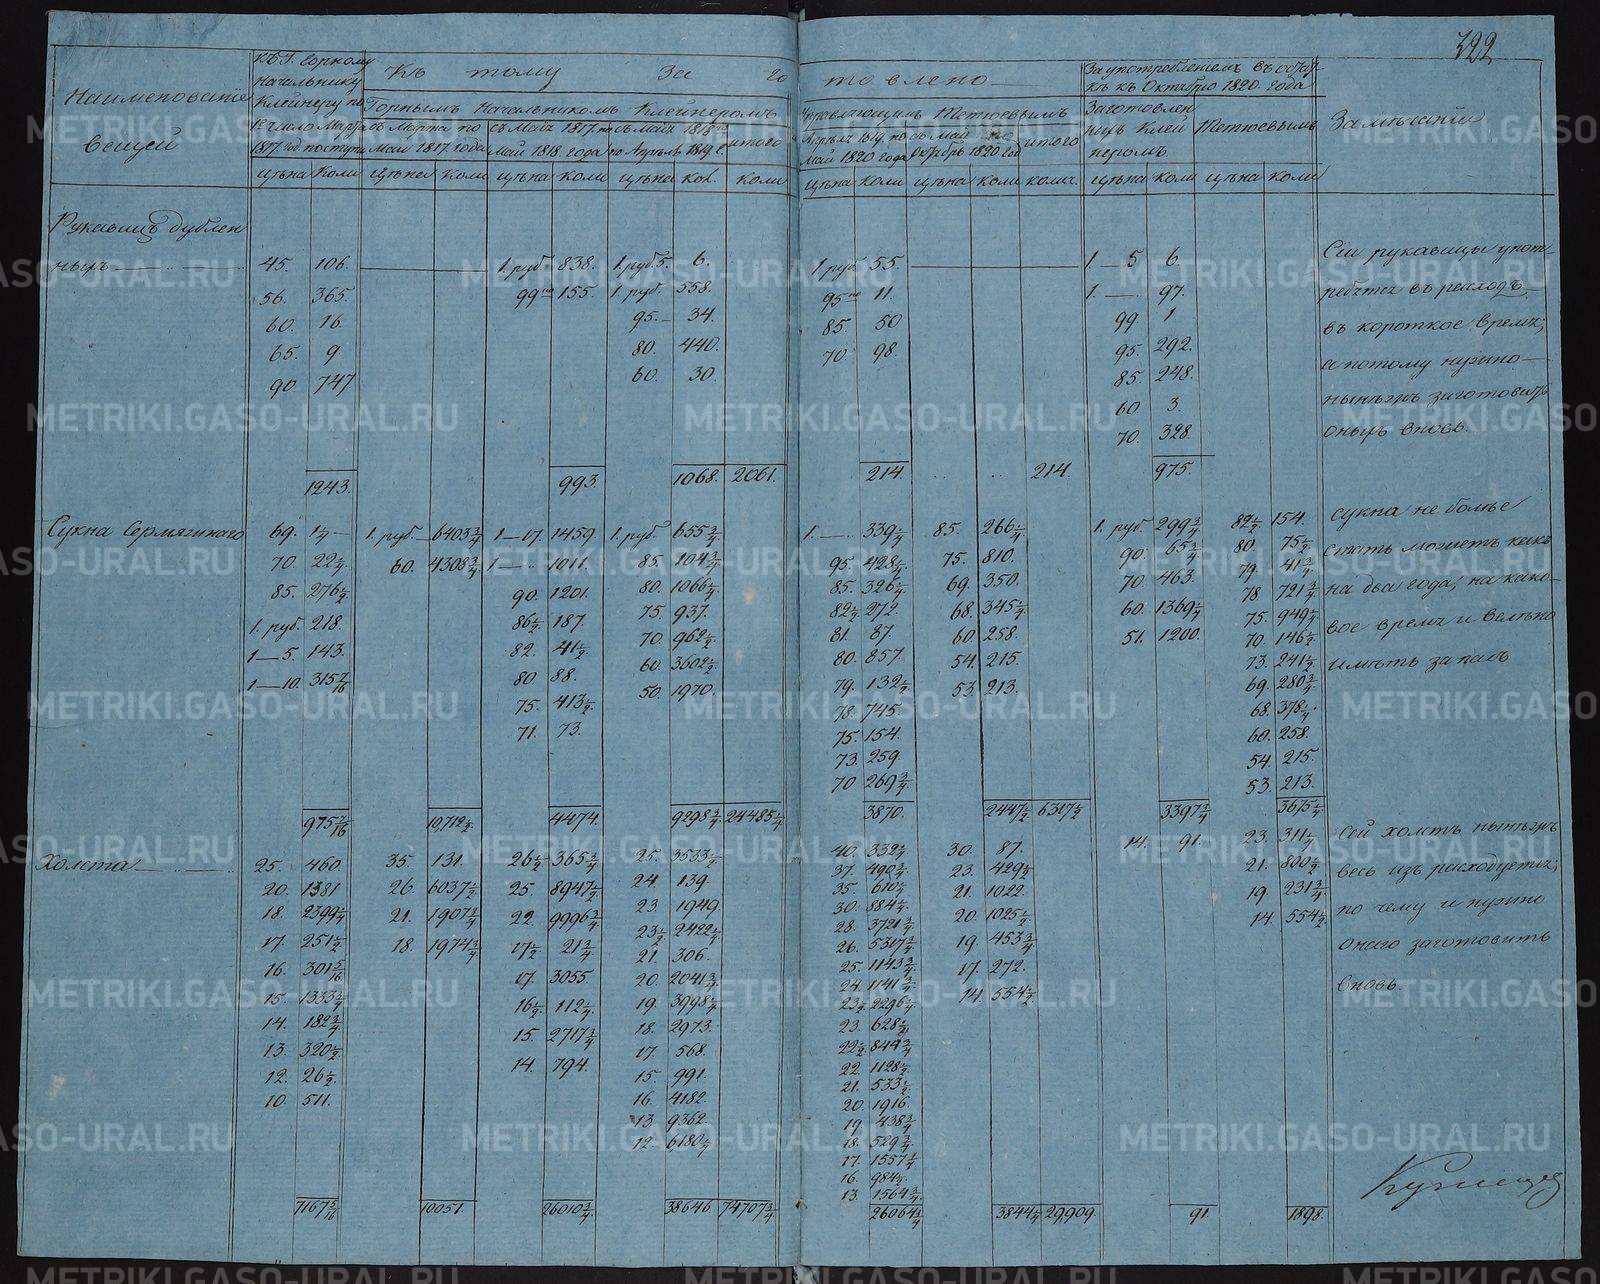 322
Наименованіе
вещей
Къ Г. Горному
Начальнику
Клейнеру по
1е число Марта
1817 год. поступи
Къ тому За го
товлено
Горнымъ Начальникомъ Клейнеромъ
съ Марта по
Май 1817 года
съ Май 1817 по
Май 1818 года
съ Май 1818 по
по Апрѣль 1819 г.
итого
Управляющимъ Тетюевымъ
Апрѣль 1819. по
Май 1820 года
съ Май по
Октябрь 1820. год
итого
За употребленіемъ въ остат
кѣ къ Октябрю 1820. года
Заготовлен
ныхъ Клей
неромъ.
Тетюевымъ
Замѣчаніи
цѣна Коли цѣна коли цѣна коли цѣна кол. коли
цѣна коли цѣна коли колич. цѣна коли цѣна коли
Рукавицъ дублен
ныхъ
45. 106. 1. руб. 838. 1. руб. 5. 6.
56. 365. 99 по 155. 1. руб. 558.
60. 16. 95. 34.
65. 9. 80. 440.
90 747 60. 30.
1243. 993. 1068. 2061.
1 руб 55. 1. — 5 6
95 по 11. 1. — 97.
85. 50 99. 1
70. 98. 95. 292.
85. 248.
60. 3.
70. 328.
214. 214. 975.
Сіи рукавицы упот-
ребятся въ расходъ
въ короткое время;
а потому нужно
нынѣ заготовить
оныхъ вновь.
Сукна Сермяжнаго
69. 1 1/4 1. руб. 6403 3/4 1—17. 1459. 1. руб. 655 3/4
70. 22 1/4 60. 4308 3/4 1— 1011. 85. 104 3/4
85. 276 1/2 90. 1201. 80. 1066 1/4
1. руб. 218. 86 1/2 187. 75. 937.
1—5. 143. 82. 41 1/2 70. 962 1/2
1—10. 315 7/16 80 88. 60. 3602 1/2
75. 413 1/2 50. 1970.
71. 73.
975 7/16 10,712 1/2 4474. 9298 3/4 24485 1/4
1. — 339 1/4 85. 266 1/4 1. руб 299 3/4 82 1/2 154.
95. 428 1/4 75. 810. 90. 65 3/4 80. 75 1/2
85. 326 1/4 69. 350. 70. 463. 79. 41 3/4
82 1/2 272. 68. 345 1/4 60. 1369 1/4 78 721 3/4
81. 87. 60. 258. 51. 1200. 75. 949 1/4
80. 857. 54. 215. 70. 146 1/2
79. 132 1/2 53. 213. 73. 241 1/2
78. 745. 69. 280 3/4
75. 154. 68. 378 1/4
73. 259. 60. 258.
70 269 3/4 54. 215.
53. 213.
3870. 2447 1/2 6317 1/2 3397 3/4 3675 1/4
сукна не болѣе
стать можетъ какъ
на два года; на како-
вое время и велѣно
имѣть запасъ
Холста
25. 460. 35. 131. 26 1/2 365 3/4 25. 3533 1/2
20. 1381 26. 6037 1/2 25. 8947 1/2 24. 139.
18. 2399 1/4 21. 1907 3/4 22. 9996 3/4 23. 1949.
17. 251 1/2 18. 1974 3/4 17 1/2 21 3/4 23 1/2 2422 1/4
16. 301 5/16 17. 3055. 21. 306.
15. 1333 3/4 16 1/2 112 1/4 20. 2041 3/4
14. 182 3/4 15. 2717 3/4 19. 3998 1/4
13. 320 1/2 14. 794. 18. 2973.
12. 26 1/2 17. 568.
10. 511. 15. 991.
16. 4182.
13 9362.
12. 6180 1/4
7167 5/16 10051. 26010 3/4 38646. 74707 3/4
40. 332 1/2 30. 87. 14. 91. 23. 311 1/4
37. 490 3/4 23. 429 1/2 21. 800 1/2
35. 610 1/4 21. 1022. 19. 231 3/4
30. 884 1/2 20. 1025 1/2 14. 554 1/2
28. 3721 3/4 19. 453 3/4
26. 5317 3/4 17. 272.
25. 1143 3/4 14. 554 1/2
24. 1141 3/4
23 1/2 2296 1/4
23. 628 1/2
22 1/2 844 3/4
22. 1128 1/2
21. 533 1/2
20. 1916.
19. 438 3/4
18. 529 3/4
17. 1557 1/4
16. 984 1/2
13. 1564 3/4
26064 3/4 3844 1/4 29,909. 91. 1898.
Сей холстъ нынѣ
весь изъ расходуется;
по чему и нужно
онаго заготовить
вновь.
METRIKI.GASO-URAL.RU